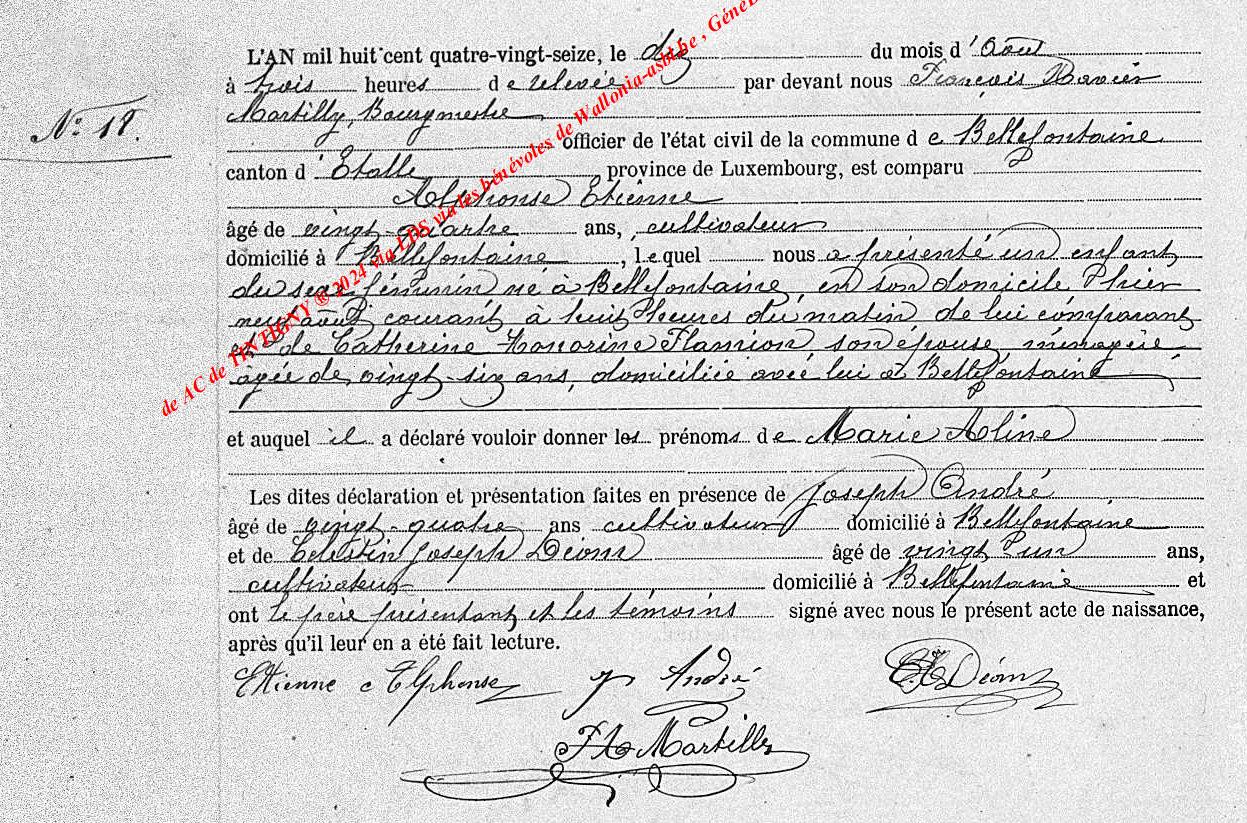 L'AN mil huit cent quatre-vingt-seize, le dix du mois d'Août
à trois heures de relevée par devant nous François Xavier
Martilly, Bourgmestre
N° 18.
officier de l'état civil de la commune de Bellefontaine
canton d'Etalle province de Luxembourg, est comparu
Alphonse Etienne
âgé de vingt-quatre ans, cultivateur
domicilié à Bellefontaine, lequel nous a présenté un enfant
du sexe féminin né à Bellefontaine, en son domicile hier
neuf août courant à huit heures du matin de lui comparant
et de Catherine Honorine Flamion son épouse, ménagère
âgée de vingt-six ans, domiciliée avec lui à Bellefontaine
et auquel il a déclaré vouloir donner les prénoms de Marie Aline
Les dites déclaration et présentation faites en présence de Joseph André
âgé de vingt-quatre ans cultivateur domicilié à Bellefontaine
et de Célestin Joseph Déom âgé de vingt un ans,
cultivateur domicilié à Bellefontaine et
ont le père présentant et les témoins signé avec nous le présent acte de naissance,
après qu'il leur en a été fait lecture.
Etienne Alphonse J André Déom
F X Martilly
de AC de TINTIGNY ® 2024 via LDS via les bénévoles de Wallonia-asbl.be, GeneB